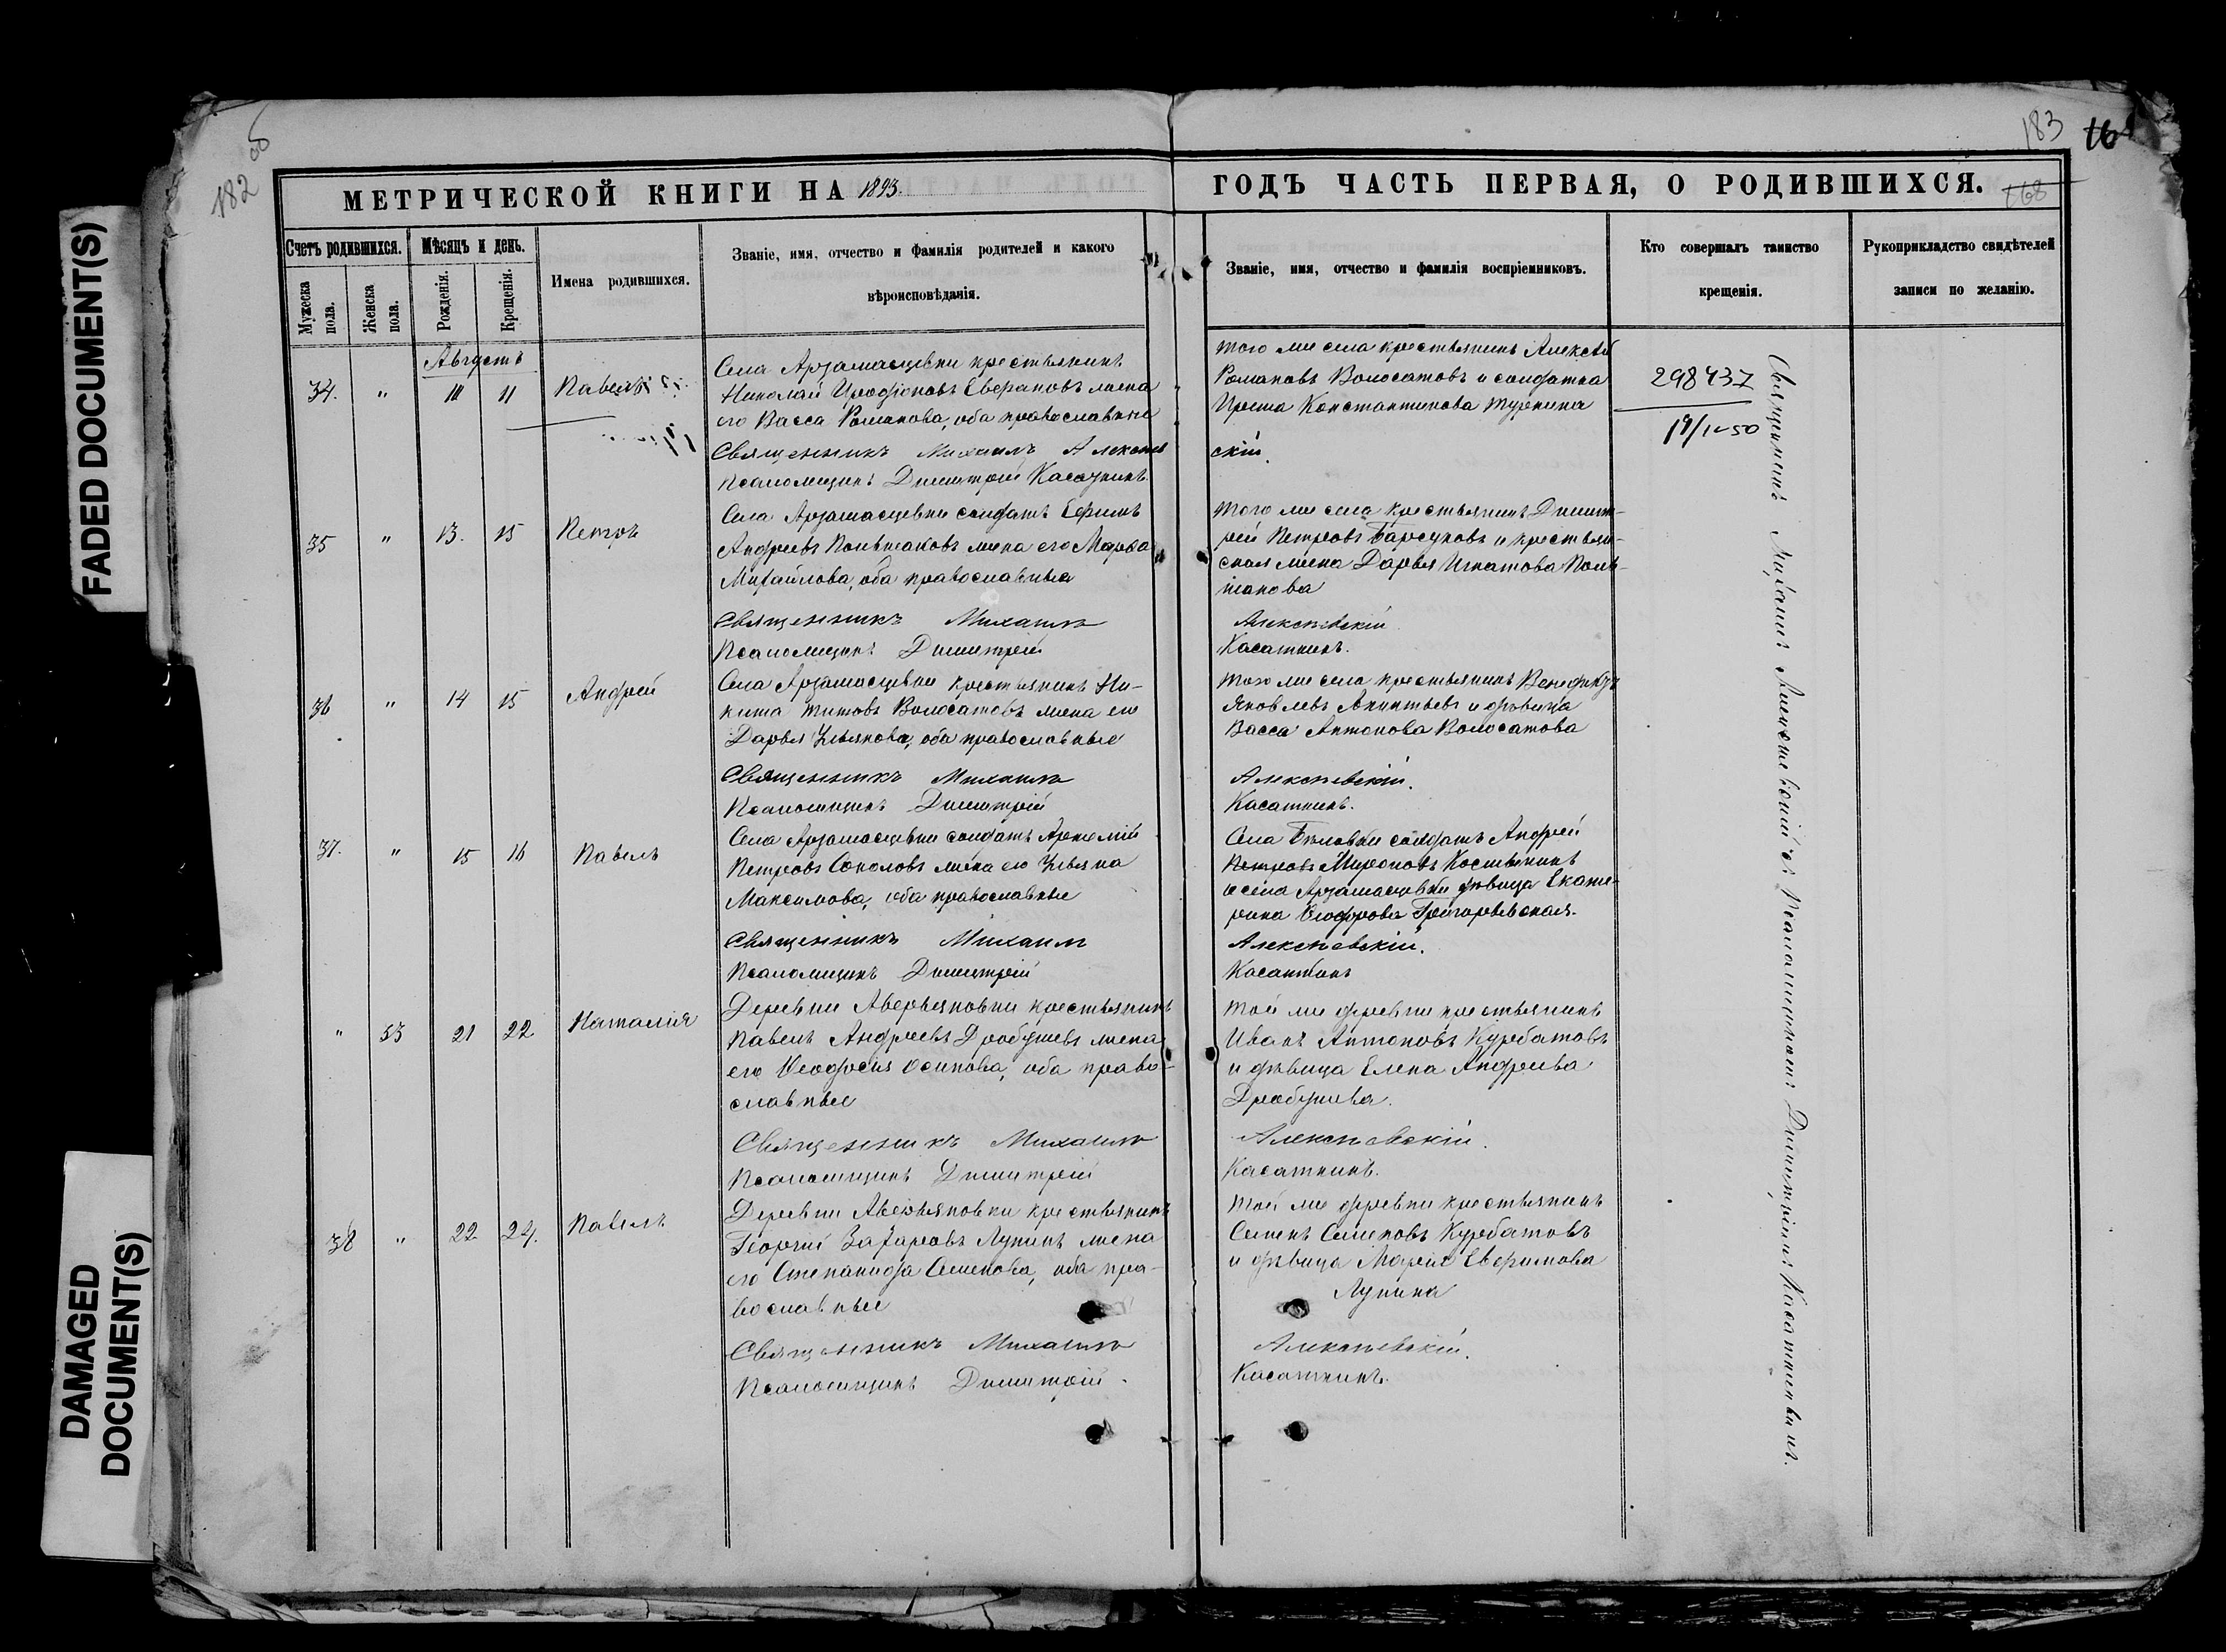 182 об
183
168
МЕТРИЧЕСКОЙ КНИГИ НА 1893.
ГОДЪ ЧАСТЬ ПЕРВАЯ, О РОДИВШИХСЯ.
Счетъ родившихся.
Мужеска пола.
Женска пола.
Мѣсяцъ и день.
Рожденія.
Крещенія.
Имена родившихся.
Званіе, имя, отчество и фамилія родителей и какого
вѣроисповѣданія.
Званіе, имя, отчество и фамилія воспріемниковъ.
Кто совершалъ таинство
крещенія.
Рукоприкладство свидѣтелей
записи по желанію.
Августъ
34. " 11 Павелъ
Села Арзамасцевки крестьянинъ
Николай жена
его Васса Романова, оба православные
Священникъ Михаилъ Алексѣев
скій.
Псаломщикъ Димитрій Касаткинъ.
того же села крестьянинъ Алексѣй
Романовъ Волосатовъ и солдатка
Константинова
298437
35 " 13. 15 Петръ
Села Арзамасцевки солдатъ Ефимъ
Андреевъ Польшаковъ жена его Марѳа
Михайлова, оба православные
того же села крестьянинъ Димит-
рій Петровъ Барсуковъ и крестьян-
ская жена Дарья Игнатова Поль-
шакова
Священникъ Михаилъ
Алексѣевскій
Псаломщикъ Димитрій
Касаткинъ.
36 " 14 15 Андрей
Села Арзамасцевки крестьянинъ Ни-
кита Титовъ Волосатовъ жена его
Дарья Ульянова, оба православные
того же села крестьянинъ Венедиктъ
Яковлевъ и дѣвица
Васса Антонова Волосатова
Священникъ Михаилъ
Алексѣевскій.
Псаломщикъ Димитрій
Касаткинъ.
37. " 15 16 Павелъ
Села Арзамасцевки солдатъ Артемій
Петровъ Соколовъ жена его Ульяна
Максимова, оба православные
Села Бѣловки солдатъ Андрей
Петровъ Мироновъ
и села Арзамасцевки дѣвица Екате-
рина Ѳеодорова Григорьевская.
Священникъ Михаилъ
Алексѣевскій.
Псаломщикъ Димитрій
Касаткинъ
" 33 21 22 Наталія
Деревни Аверьяновки крестьянинъ
Павелъ Андреевъ Дробушевъ жена
его Ѳеодосія Осипова, оба право-
славные
той же деревни крестьянинъ
Иванъ Антоновъ Курбатовъ
и дѣвица Елена Андреева
Дробушева.
Священникъ Михаилъ
Алексѣевскій.
Псаломщикъ Димитрій
Касаткинъ.
38 " 22 24. Павелъ
Деревни Аверьяновки крестьянинъ
Георгій Захаровъ Лунинъ жена
его Степанида Семенова, оба пра-
вославные
той же деревни крестьянинъ
Семенъ Семеновъ Курбатовъ
и дѣвица Марія Евфимова
Лунина
Священникъ Михаилъ
Алексѣевскій.
Псаломщикъ Димитрій.
Касаткинъ.
Священникъ Михаилъ Алексѣевскій съ Псаломщикомъ Димитріемъ Касаткинымъ.
FADED DOCUMENT(S)
DAMAGED
DOCUMENT(S)